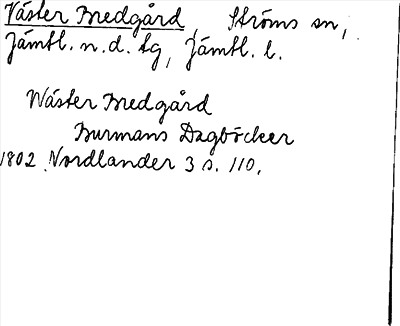 Väster Bredgård, Ströms sn,
Jämtl. n. d. tg, Jämtl. l.
Wäster Bredgård
Burmans Dagböcker
1802. Nordlander 3 s. 110.